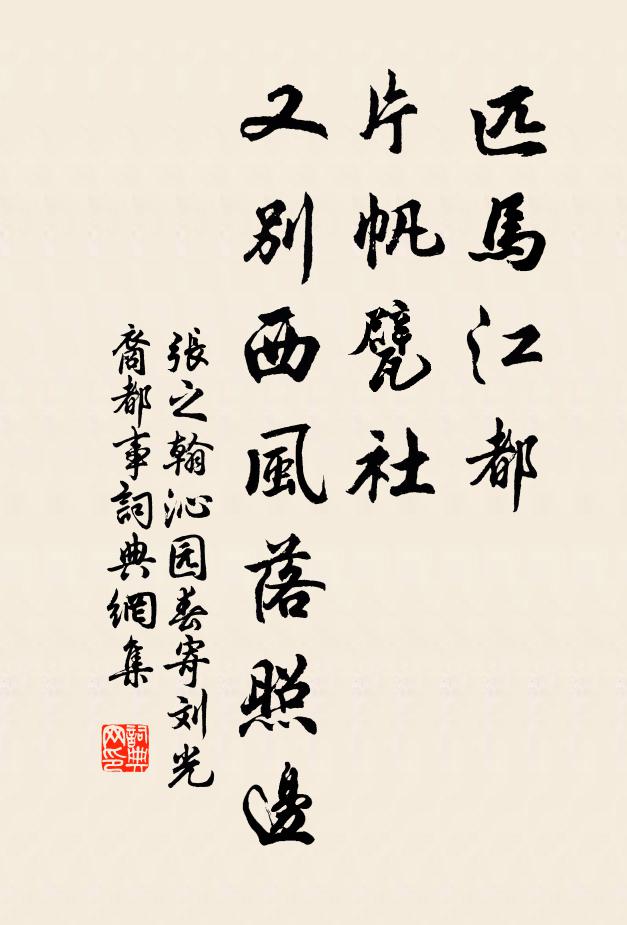 匹馬江都
片帆甓社
又別西風落照邊
張之翰沁园春寄刘光
裔都事詞典網集
詞典網印